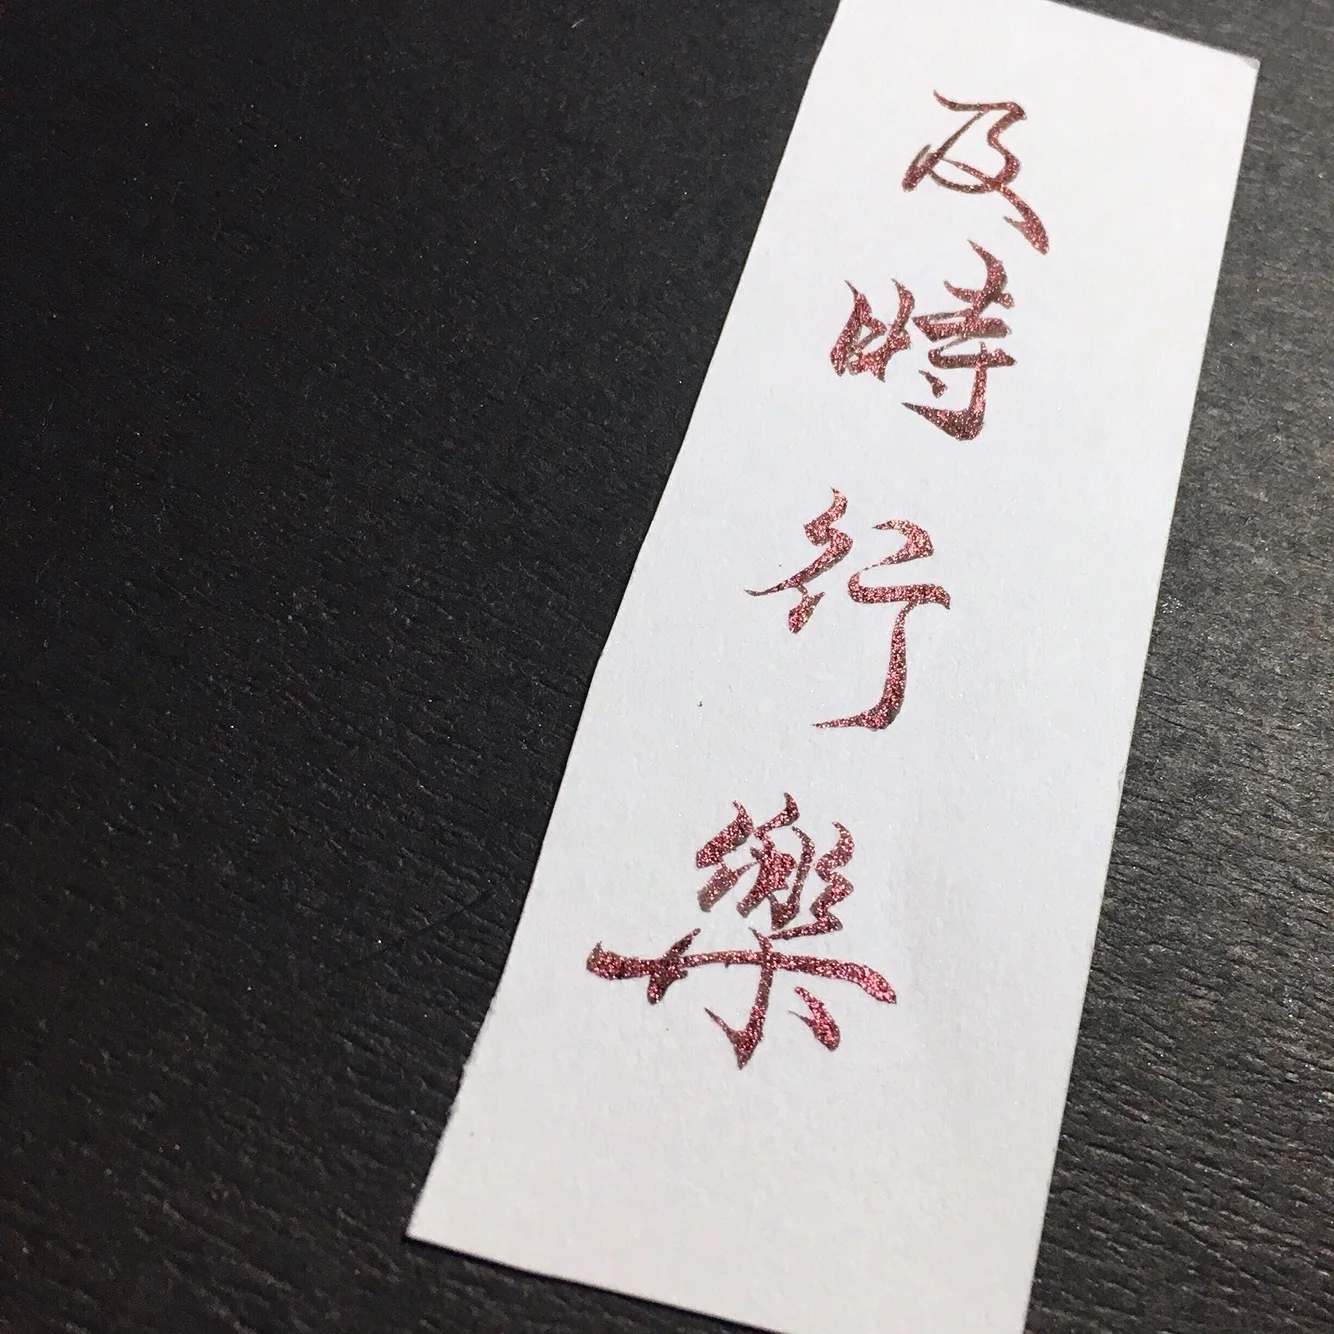 及時行樂